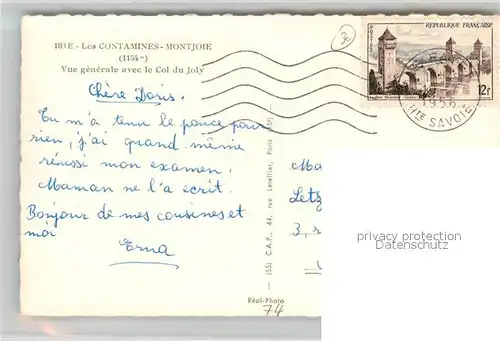 183E - LES CONTAMINES - MONTJOIE
(1154 m)
Vue générale avec le Col du Joly
3e
RÉPUBLIQUE FRANÇAISE
POSTES
12f
1956
HTE SAVOIE
Chère Doris.
Tu m'a tenu le pouce pour
rien, j'ai quand même
réussi mon examen.
Maman ne l'a ecrit.
Bonjour de mes cousines et
moi
Erna
(55) C.A.P., 44, rue Letellier, Paris (15e)
Réal-Photo
74
Ma
Letz
3, r
privacy protection
Datenschutz